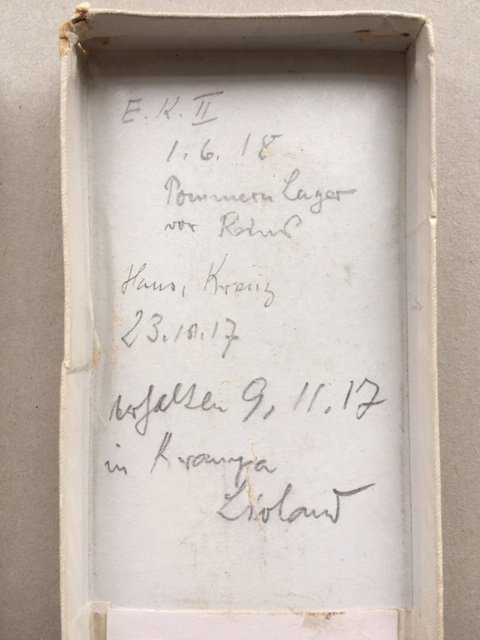 E. K. II
1. 6. 18
Pommern Lager
vor Reims
Hans. Kreuz
23. 10. 17.
erhalten 9. 11. 17
in
Livland